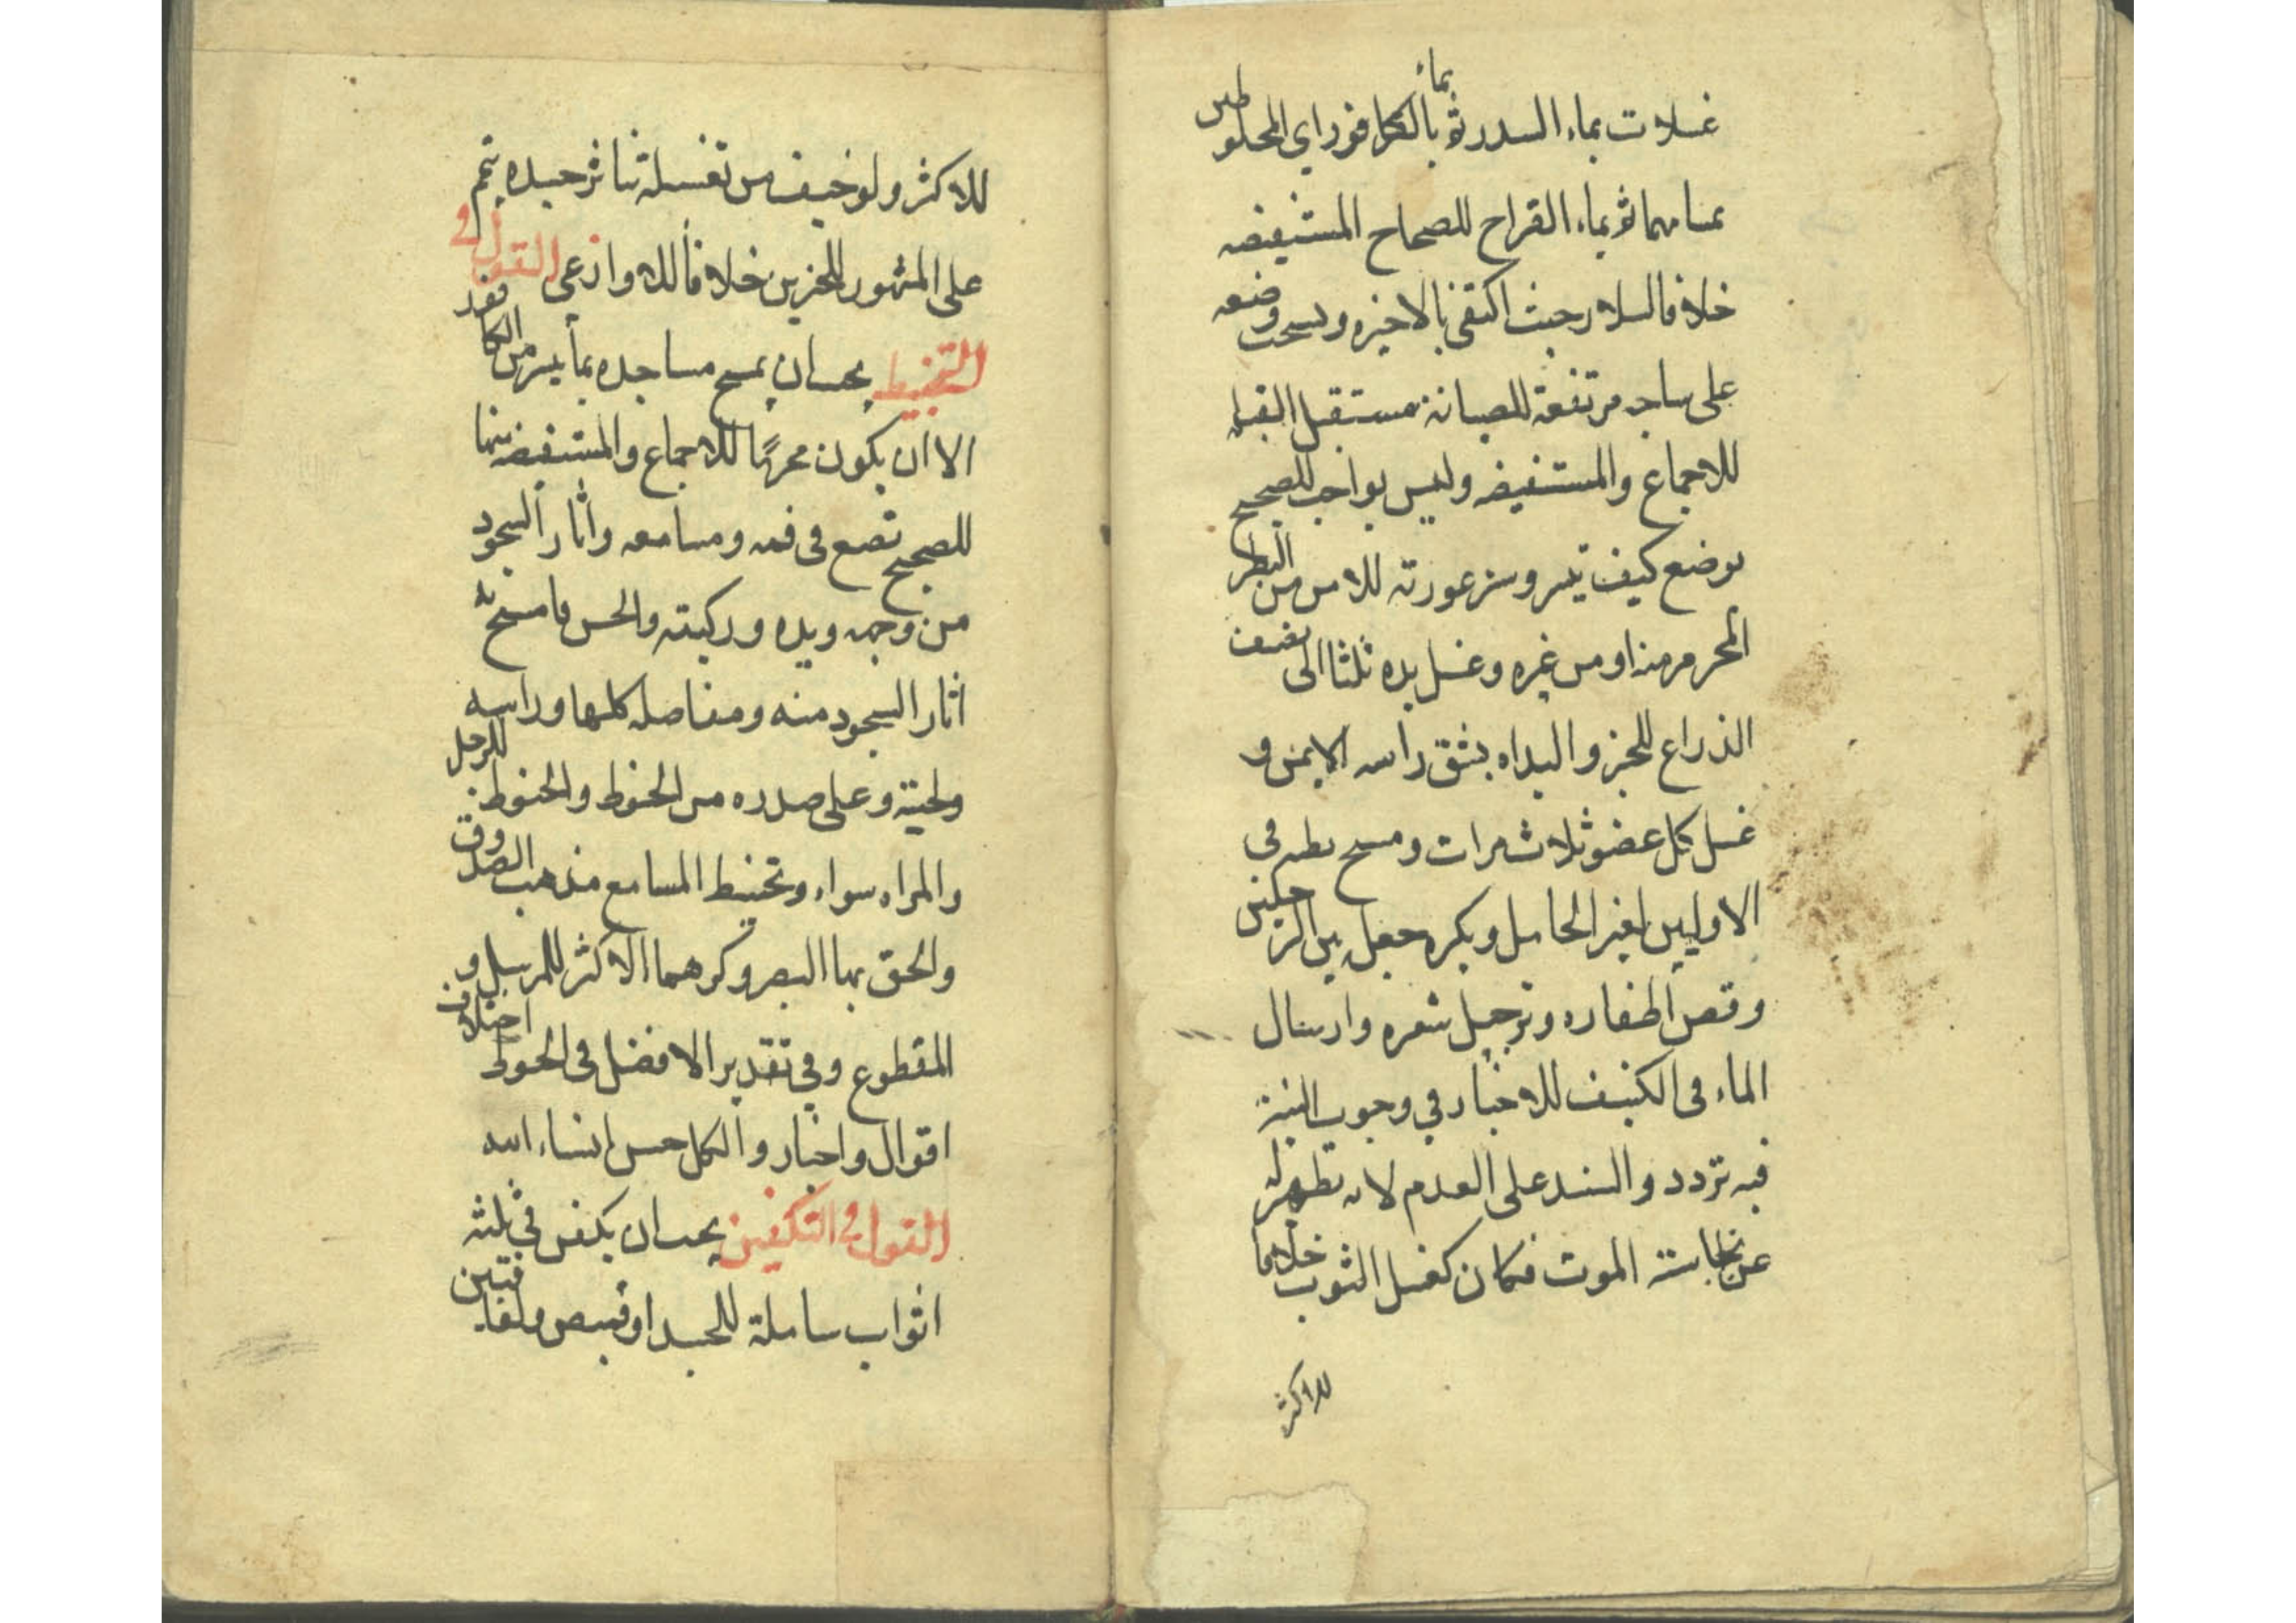 غسلات بماء السدر ثم بماء الكافور اي المخلوطين
بمسامهما ثم بماء القراح للصحاح المستفيضه
خلافا لسلار حيث اكتفى بالاخيره ويستحب وضعه
على ساجه مرتفعة للصيانة مستقبل القبله
للاجماع والمستفيضه وليس بواجب للصحيح
يوضع كيف تيسر وستر عورته للامن من النظر
المحرم منه او من غيره وغسل يده ثلثا الى نصف
الذراع للخبر والبداه بشق راسه الايمن و
غسل كل عضو ثلاث مرات ومسح بطنه في
الاوليين لغير الحامل ويكره جعله بين الرجلين
وقص اظفاره وترجيل شعره وارسال
الماء في الكنيف للاخبار في وجوب النية
فيه تردد والسند على العدم لانه تطهير له
عن نجاسة الموت فكان كغسل الثوب خلافا
للاكثر
للاكثر ولو خيف من تغسيله تناثر جسده يتمم
على المشهور للخبرين خلافا للاوزاعي القول في
التحنيط يجب ان يمسح مساجده بما تيسر من الكافور
الا ان يكون محرما للاجماع والمستفيضه فيهما
للصحيح تضع في فمه ومسامعه واثار السجود
من وجهه ويده وركبتيه والحسن فامسح به
اثار السجود منه ومفاصله كلها وراسه
ولحيته وعلى صدره من الحنوط والحنوط للرجل
والمراه سواء وتحنيط المسامع مذهب الصدوق
والحق بها البصر وكرهما الاكثر للمرسل و
المقطوع وفي تقدير الافضل في الحنوط اختلاف
اقوال واخبار والكل حسن انشاء الله
القول في التكفين يجب ان يكفن في ثلثه
اثواب شاملة للجسد او قميص ولفافتين